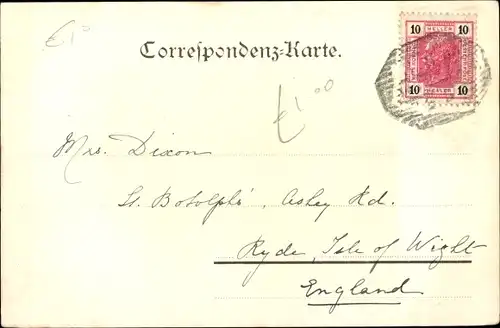 £1.00
Correspondenz-Karte.
10 HELLER 10
10 HELLER 10
£1.00
Mrs. Dixon
St. Botolphs', Ashey Rd.
Ryde, Isle of Wight
England